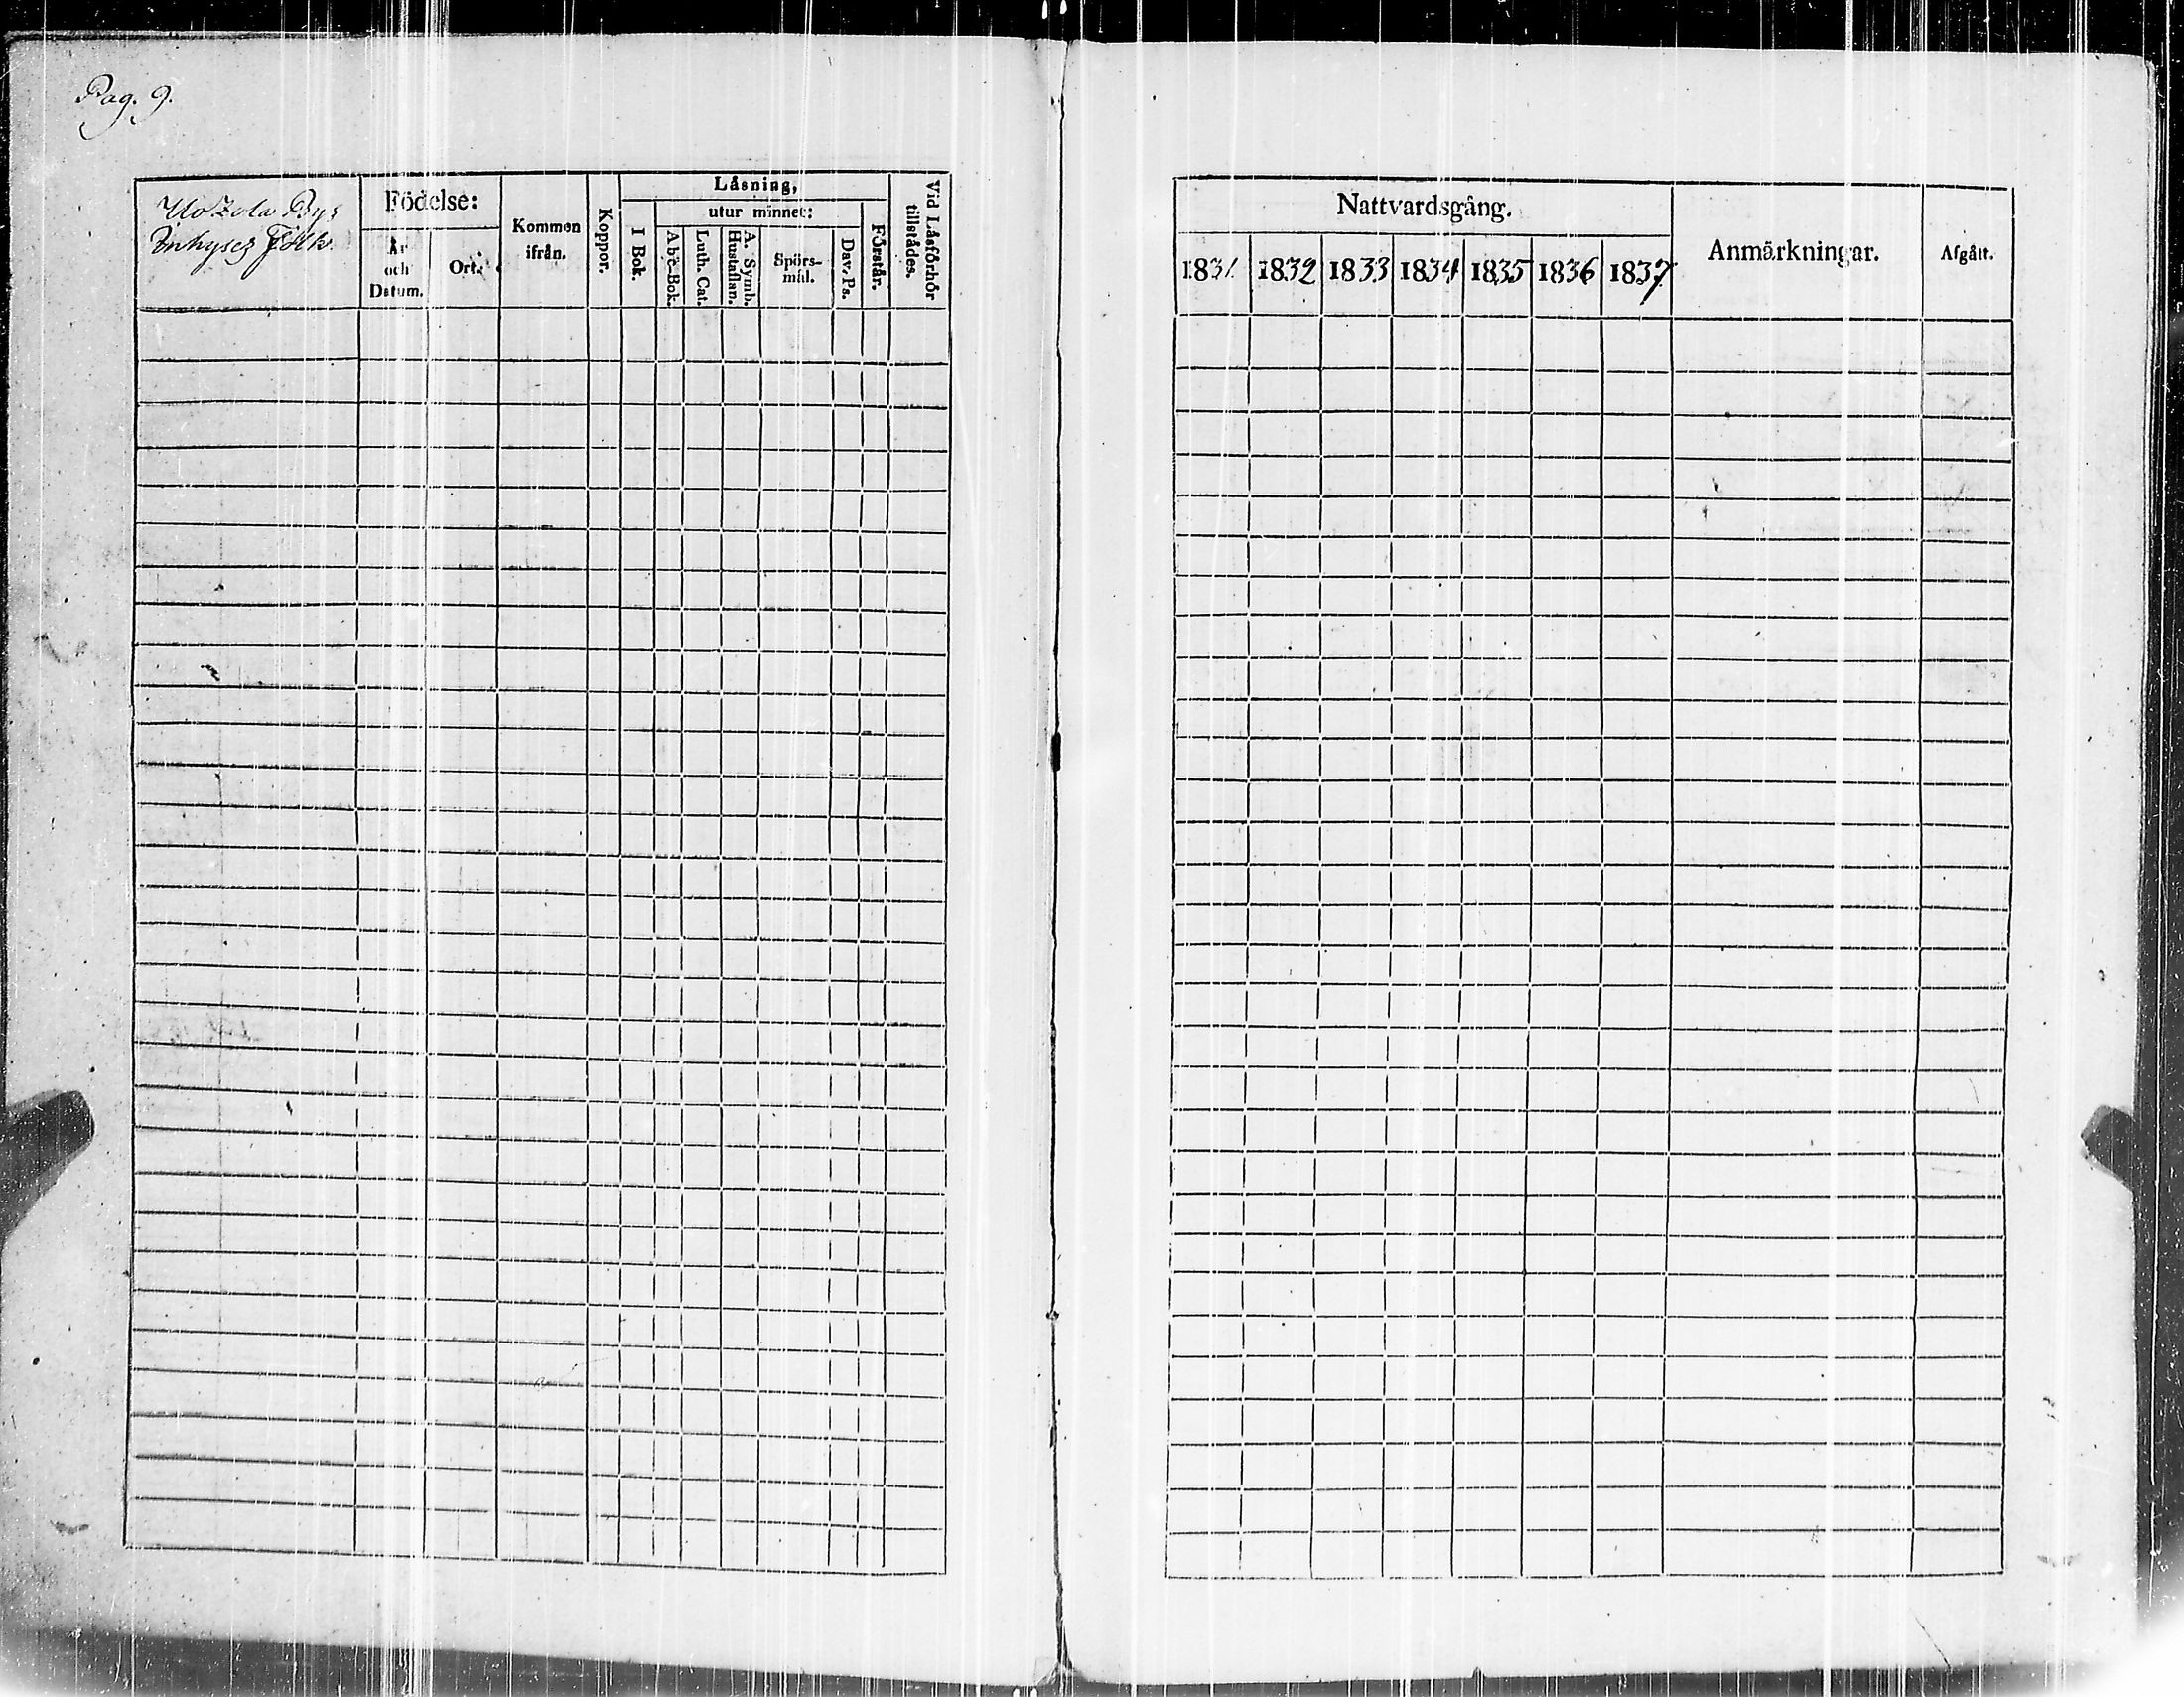 Pag. 9.
Uotola Bys
Inhyses Folk.
Födelse:
År
och
Datum.
Ort.
Kommen
ifrån.
Koppor.
Låsning,
utur minnet:
I Bok.
Abc-Bok.
Luth. Cat.
A. Symb.
Hustaflan.
Spörs-
mål.
Dav. Ps.
Förstår.
Vid Låsförhör
tillstådes.
Nattvardsgång.
1831 1832 1833 1834 1835 1836 1837
Anmärkningar.
Afgått.